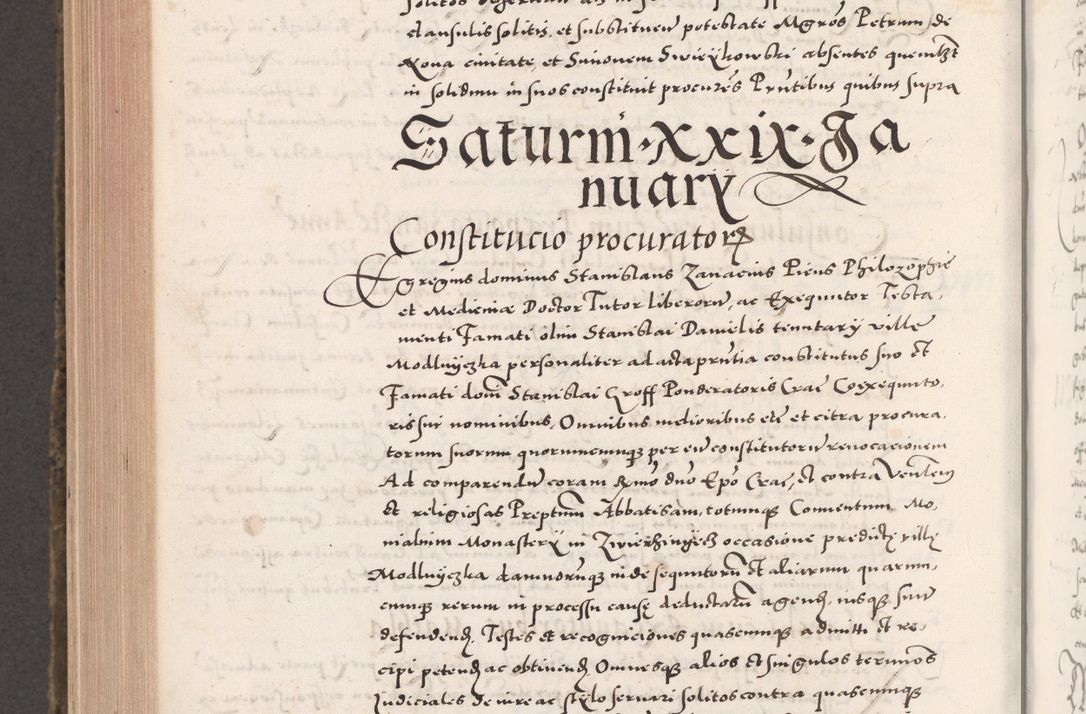 clausulis solitis, et substituen potestate Mgros Petrum de
Nova civitate, et Simonem Swieÿkowski absentes quemlzt
in solidum in suos constituit procures Pntibus quibus supra
Saturni · XXIX · Ja
nuarÿ
Constitucio procurator
Egregius dominus Stanislaus Zanaeius Pieus Philozophie
et Medicinæ Doctor Tutor liberorum, ac Exequutor Testa,
menti Famati olim Stanislai Danielis tenutarÿ villæ
Modlnÿczka personaliter ad acta pntia constitutus suo et
Famati domi Stanislai Groff Ponderatoris Crac Coexequuto,
ris sui nominibus, Omnibus melioribus etc et citra procura,
torum suorum quorumcumq per eu constitutoru revocacionem
Ad comparendu coram Rmo dno Epo Crac, et contra Venlem
et religiosas Preptum Abbatisam, totumq Conventum Mo,
nialium Monasterÿ in Zwierzinÿecz occasione predictę villę
Modlnÿczka damnorumq inde sequutoru et aliarum quarum,
cumq rerum in processu causę deductaru agend, iusq suu
defendend, Testes et recogniciones quascumq admitti et re,
cipi petend ac obtinend Omnesq alios et singulos terminos
Judiciales de iure ac stÿlo servari solitos contra quascumq